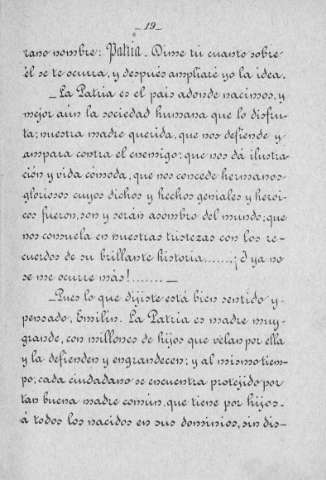 _ 19 _
rano nombre: Patria. Dime tú cuanto sobre
él se te ocurra, y después ampliaré yo la idea.
_La Patria es el país adonde nacimos, y
mejor aún la sociedad humana que lo disfru-
ta; nuestra madre querida, que nos defiende y
ampara contra el enemigo; que nos dá ilustra-
ción y vida cómoda, que nos concede hermanos
gloriosos cuyos dichos y hechos geniales y herói-
cos fueron, son y serán asombro del mundo; que
nos consuela en nuestras tristezas con los re-
cuerdos de su brillante historia.......; y ya no
se me ocurre más!....... _
_Pues lo que dijiste está bien sentido y
pensado, Emilin. La Patria es madre muy
grande, con millones de hijos que velan por ella
y la defienden y engrandecen; y al mismo tiem-
po; cada ciudadano se encuentra protejido por
tan buena madre común, que tiene por hijos
á todos los nacidos en sus dominios, sin dis-